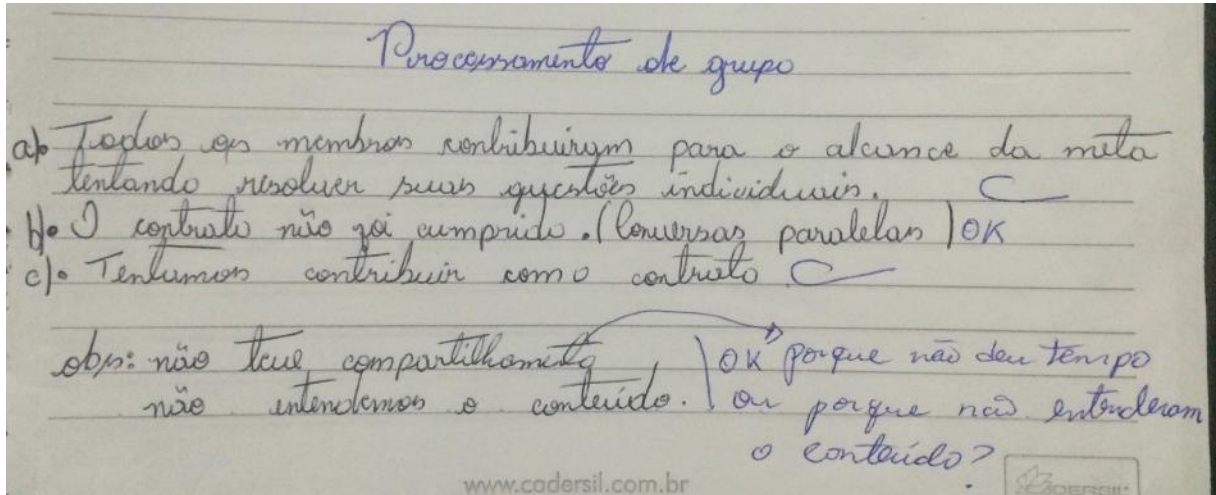 Processamento de grupo
a) Todos os membros contribuiram para o alcance da meta
tentando resolver suas questões individuais. C
b) O contrato não foi cumprido. (Conversas paralelas) OK
c) Tentamos contribuir com o contrato C
obs: não teve compartilhamento OK porque não deu tempo
não entendemos o conteúdo. ou porque não entenderam
o conteúdo?
www.cadersil.com.br
CADERSIL